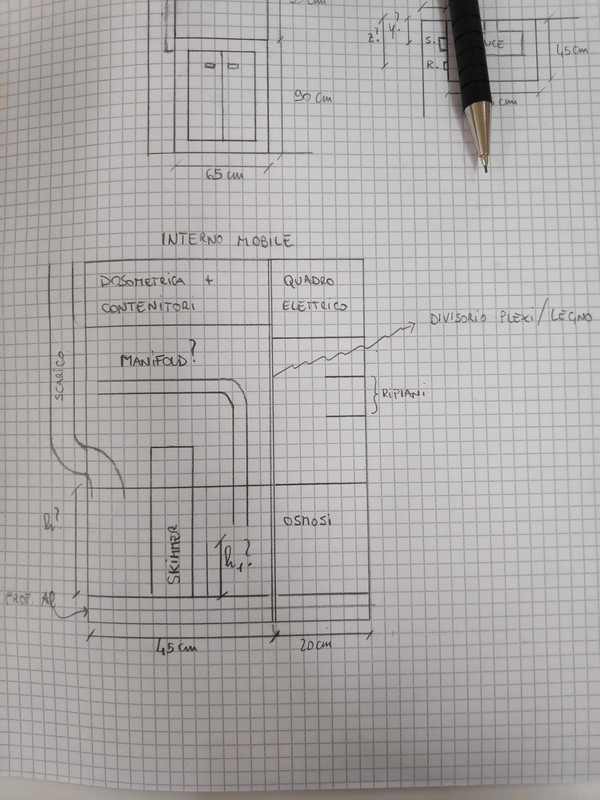 90 cm
65 cm
z? y?
S.
R.
UCE
45 cm
cm
INTERNO MOBILE
DOSOMETRICA +
CONTENITORI
QUADRO
ELETTRICO
DIVISORIO PLEXI/LEGNO
MANIFOLD?
SCARICO
RIPIANI
h?
SKIMMER
h1?
OSMOSI
PROF. Al
45 cm
20 cm